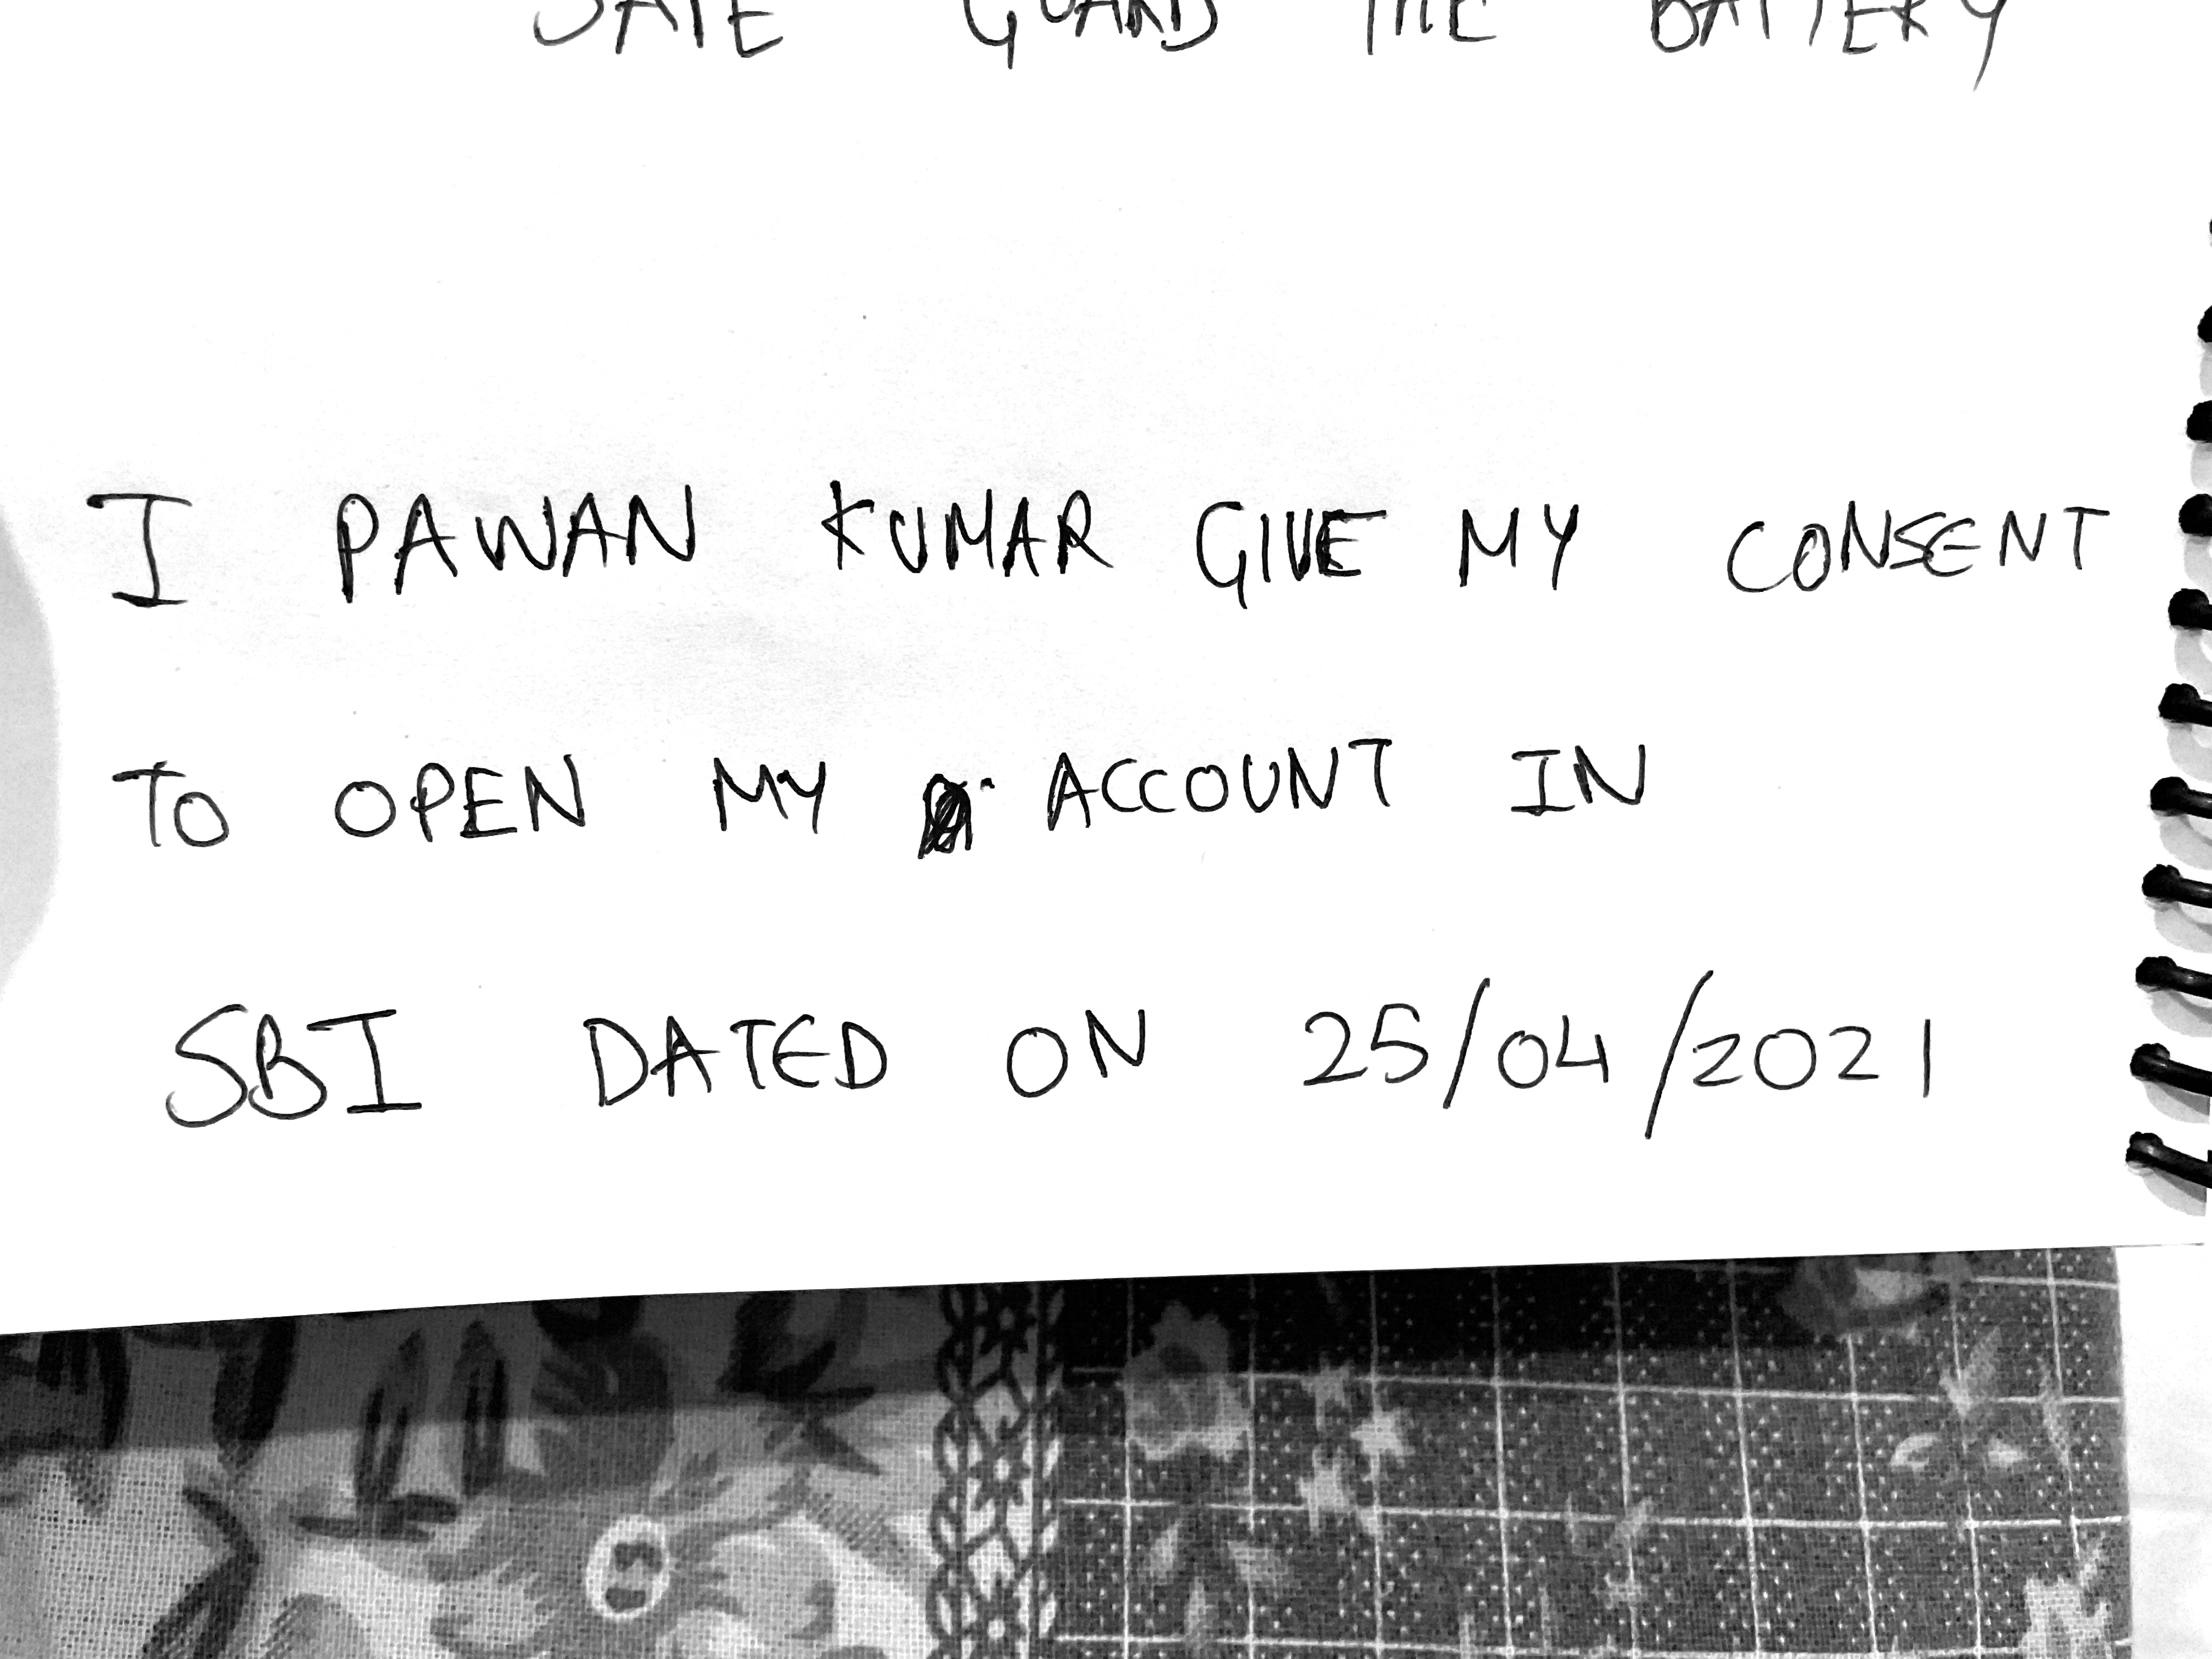 SAFE GUARD THE BATTERY
I PAWAN KUMAR GIVE MY CONSENT
TO OPEN MY ACCOUNT IN
SBI DATED ON 25/04/2021